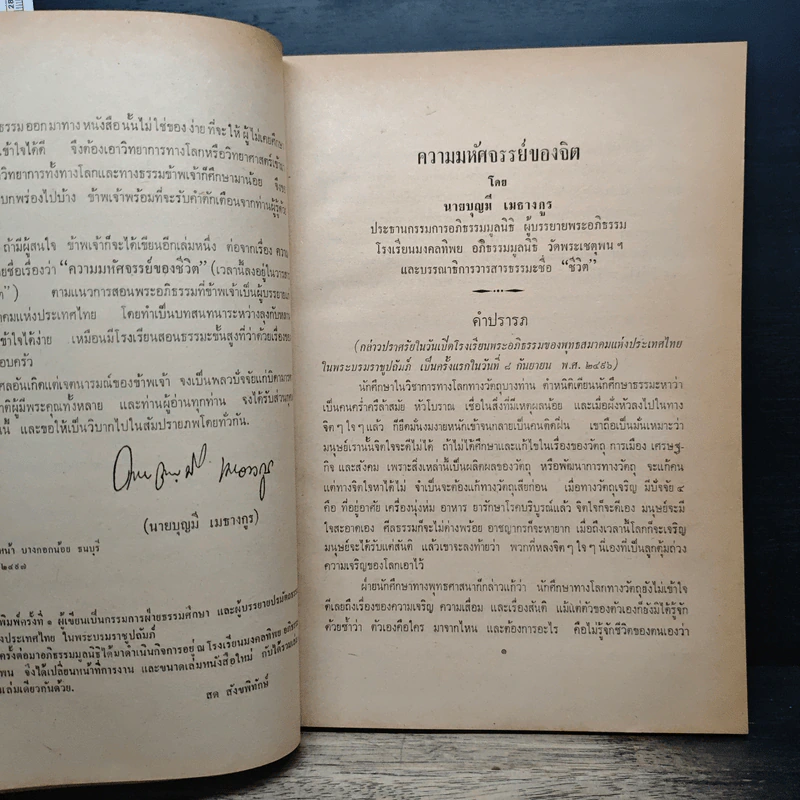 ธรรม ออก มาทาง หนังสือ นั้นไม่ ใช่ของ ง่าย ที่จะ ให้ ผู้ ไม่เคยศึกษา
เข้าใจได้ดี จึงต้องเอาวิทยาการทางโลกหรือวิทยาศาสตร์เข้ามา
วิทยาการทั้งทางโลกและทางธรรมข้าพเจ้าก็ศึกษามาน้อย จึง
บกพร่องไปบ้าง ข้าพเจ้าพร้อมที่จะรับคำตักเตือนจากท่านผู้รู้ด้วย
ถ้ามีผู้สนใจ ข้าพเจ้าก็จะได้เขียนอีกเล่มหนึ่ง ต่อจากเรื่อง ความ
ชื่อเรื่องว่า “ความมหัศจรรย์ของชีวิต” (เวลานี้ลงอยู่ในวารสาร
ต”) ตามแนวการสอนพระอภิธรรมที่ข้าพเจ้าเป็นผู้บรรยาย
คมแห่งประเทศไทย โดยทำเป็นบทสนทนาระหว่างลุงกับหลาน
เข้าใจได้ง่าย เหมือนมีโรงเรียนสอนธรรมะชั้นสูงที่ว่าด้วยเรื่องของ
อบครัว
ศลอันเกิดแต่เจตนารมณ์ของข้าพเจ้า จงเป็นพลวปัจจัยแก่บิดามารดา
าติผู้มีพระคุณทั้งหลาย และท่านผู้อ่านทุกท่าน จงได้รับส่วนกุศล
นี้ และขอให้เป็นวิบากไปในสัมปรายภพโดยทั่วกัน.
(นายบุญมี เมธางกูร)
หน้า บางกอกน้อย ธนบุรี
๒๔๙๗
พิมพ์ครั้งที่ ๑ ผู้เขียนเป็นกรรมการฝ่ายธรรมศึกษา และผู้บรรยายปรมัตถธรรม
งประเทศไทย ในพระบรมราชูปถัมภ์
ครั้งต่อมาอภิธรรมมูลนิธิได้มาดำเนินกิจการอยู่ ณ โรงเรียนมงคลทิพย อภิธรรม
พน จึงได้เปลี่ยนหน้าที่การงาน และขนาดเล่มหนังสือใหม่ กับได้รวม
เล่มเดียวกันด้วย.
สด สังขพิทักษ์
ความมหัศจรรย์ของจิต
โดย
นายบุญมี เมธางกูร
ประธานกรรมการอภิธรรมมูลนิธิ ผู้บรรยายพระอภิธรรม
โรงเรียนมงคลทิพย อภิธรรมมูลนิธิ วัดพระเชตุพน ฯ
และบรรณาธิการวารสารธรรมะชื่อ “ชีวิต”
คำปรารภ
(กล่าวปราศรัยในวันเปิดโรงเรียนพระอภิธรรมของพุทธสมาคมแห่งประเทศไทย
ในพระบรมราชูปถัมภ์ เป็นครั้งแรกในวันที่ ๘ กันยายน พ.ศ. ๒๔๙๖)
นักศึกษาในวิชาการทางโลกทางวัตถุบางท่าน ตำหนิติเตียนนักศึกษาธรรมะหาว่า
เป็นคนคร่ำครึล้าสมัย หัวโบราณ เชื่อในสิ่งที่มีเหตุผลน้อย และเมื่อฝังหัวลงไปในทาง
จิต ๆ ใจ ๆ แล้ว ก็ยึดมั่นงมงายหนักเข้าจนกลายเป็นคนดีดผี่น เขาถือเป็นมั่นเหมาะว่า
มนุษย์เรานั้นจิตใจจะดีไม่ได้ ถ้าไม่ได้ศึกษาและแก้ไขในเรื่องของวัตถุ การเมือง เศรษฐ-
กิจ และสังคม เพราะสิ่งเหล่านี้เป็นผลิตผลของวัตถุ หรือพัฒนาการทางวัตถุ จะแก้คน
แต่ทางจิตใจหาได้ไม่ จำเป็นจะต้องแก้ทางวัตถุเสียก่อน เมื่อทางวัตถุเจริญ มีปัจจัย ๔
คือ ที่อยู่อาศัย เครื่องนุ่งห่ม อาหาร ยารักษาโรคบริบูรณ์แล้ว จิตใจก็จะดีเอง มนุษย์จะมี
ใจสะอาดเอง ศีลธรรมก็จะไม่ด่างพร้อย อาชญากรก็จะหายาก เมื่อถึงเวลานี้โลกก็จะเจริญ
มนุษย์จะได้รับแต่สันติ แล้วเขาจะลงท้ายว่า พวกที่หลงจิต ๆ ใจ ๆ นี่เองที่เป็นลูกตุ้มถ่วง
ความเจริญของโลกเอาไว้
ฝ่ายนักศึกษาทางพุทธศาสนาก็กล่าวแก้ว่า นักศึกษาทางโลกทางวัตถุยังไม่เข้าใจ
ดีเลยถึงเรื่องของความเจริญ ความเสื่อม และเรื่องสันติ แม้แต่ตัวของตัวเองก็ยังมิได้รู้จัก
ด้วยซ้ำว่า ตัวเองคือใคร มาจากไหน และต้องการอะไร คือไม่รู้จักชีวิตของตนเองว่า
๑